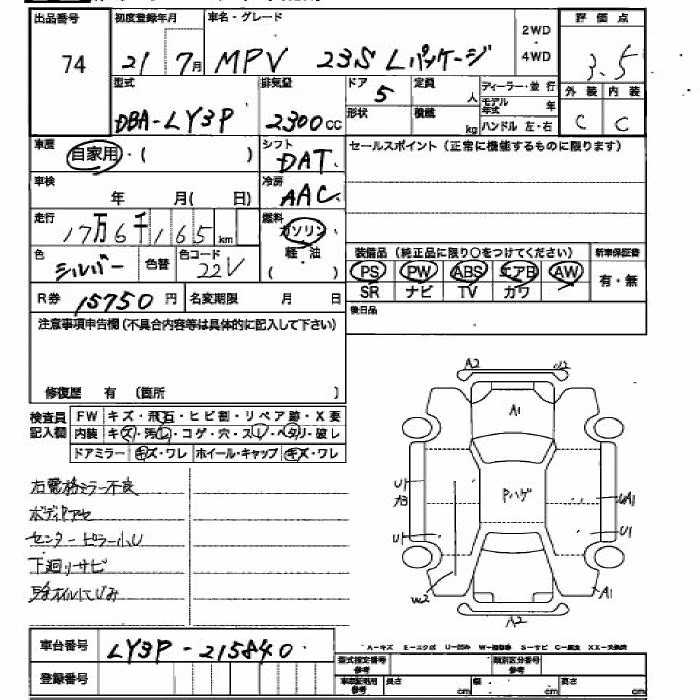 出品番号 74
初度登録年月 21 7月
車名・グレード MPV 23S Lパッケージ
2WD・4WD
評価点 3.5
外装 C 内装 C
型式 DBA-LY3P
排気量 2300cc
ドア 5
定員 人
形状
積載 kg
ディーラー・並行
モデル年式 年
ハンドル 左・右
車歴 自家用・( )
シフト DAT
セールスポイント(正常に機能するものに限ります)
車検 年 月( 日)
冷房 AAC
走行 17万6千165km
燃料 ガソリン 軽・油 ( )
色 シルバー 色替 色コード 22V
装備品(純正品に限り〇をつけてください) 新車保証書
PS PW ABS エアB AW 有・無
SR ナビ TV カワ
R券 15750円 名変期限 月 日
後日品
注意事項申告欄(不具合内容等は具体的に記入して下さい)
修復歴 有 (箇所 )
検査員記入欄 FW キズ・飛石・ヒビ割・リペア跡・X要
内装 キズ・汚レ・コゲ・穴・スレ・ヘタリ・破レ
ドアミラー キズ・ワレ ホイール・キャップ キズ・ワレ
右電格ミラー不良
ボディアセ
センターピラー小U
下廻りサビ
A2 U2
A1
U1
Pハゲ
UA1
U1
U1
W2
A1
A2
車台番号 LY3P-215840
登録番号
A-キズ E-エクボ U-凹み W-補修跡 S-サビ C-腐食 XX-交換済
型式指定番号 参考
類別区分番号 参考
車庫証明用 参考 長さ cm 幅 cm 高さ cm